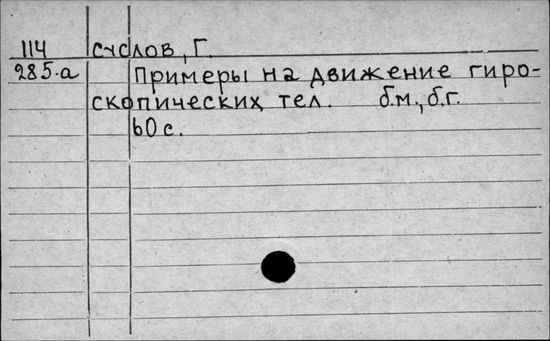 114 Суслов, Г.
285.а Примеры на движение гиро-
скопических тел. б.м., б.г.
60 с.